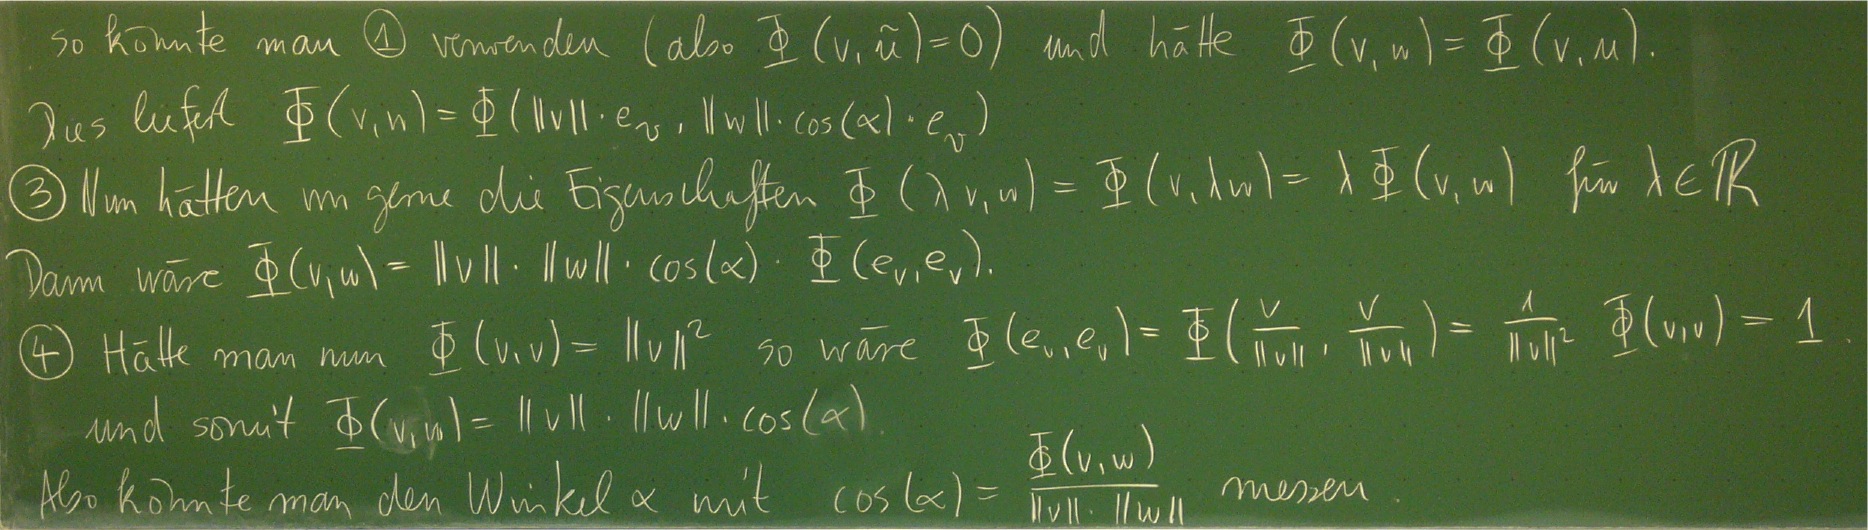 so könnte man ① verwenden (also Φ(v, ũ) = 0) und hätte Φ(v, w) = Φ(v, u).
Dies liefert Φ(v, w) = Φ(||v|| · e_v, ||w|| · cos(α) · e_v)
③ Nun hätten wir gerne die Eigenschaften Φ(λv, w) = Φ(v, λw) = λ Φ(v, w) für λ ∈ ℝ
Dann wäre Φ(v, w) = ||v|| · ||w|| · cos(α) · Φ(e_v, e_v).
④ Hätte man nun Φ(v, v) = ||v||² so wäre Φ(e_v, e_v) = Φ(v/||v||, v/||v||) = 1/||v||² Φ(v, v) = 1.
und somit Φ(v, w) = ||v|| · ||w|| · cos(α).
Also könnte man den Winkel α mit cos(α) = Φ(v, w)/(||v|| · ||w||) messen.